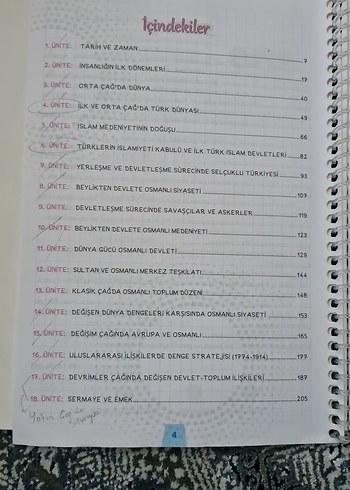 İçindekiler
1. ÜNİTE: TARİH VE ZAMAN 7
2. ÜNİTE: İNSANLIĞIN İLK DÖNEMLERİ 17
3. ÜNİTE: ORTA ÇAĞ'DA DÜNYA 40
4. ÜNİTE: İLK VE ORTA ÇAĞ'DA TÜRK DÜNYASI 49
5. ÜNİTE: İSLAM MEDENİYETİNİN DOĞUŞU 66
6. ÜNİTE: TÜRKLERİN İSLAMİYETİ KABULÜ VE İLK TÜRK İSLAM DEVLETLERİ 82
7. ÜNİTE: YERLEŞME VE DEVLETLEŞME SÜRECİNDE SELÇUKLU TÜRKİYESİ 93
8. ÜNİTE: BEYLİKTEN DEVLETE OSMANLI SİYASETİ 107
9. ÜNİTE: DEVLETLEŞME SÜRECİNDE SAVAŞÇILAR VE ASKERLER 119
10. ÜNİTE: BEYLİKTEN DEVLETE OSMANLI MEDENİYETİ 123
11. ÜNİTE: DÜNYA GÜCÜ OSMANLI DEVLETİ 129
12. ÜNİTE: SULTAN VE OSMANLI MERKEZ TEŞKİLATI 144
13. ÜNİTE: KLASİK ÇAĞDA OSMANLI TOPLUM DÜZENİ 148
14. ÜNİTE: DEĞİŞEN DÜNYA DENGELERİ KARŞISINDA OSMANLI SİYASETİ 153
15. ÜNİTE: DEĞİŞİM ÇAĞINDA AVRUPA VE OSMANLI 165
16. ÜNİTE: ULUSLARARASI İLİŞKİLERDE DENGE STRATEJİSİ (1774-1914) 177
17. ÜNİTE: DEVRİMLER ÇAĞINDA DEĞİŞEN DEVLET-TOPLUM İLİŞKİLERİ 187
18. ÜNİTE: SERMAYE VE EMEK 205
4